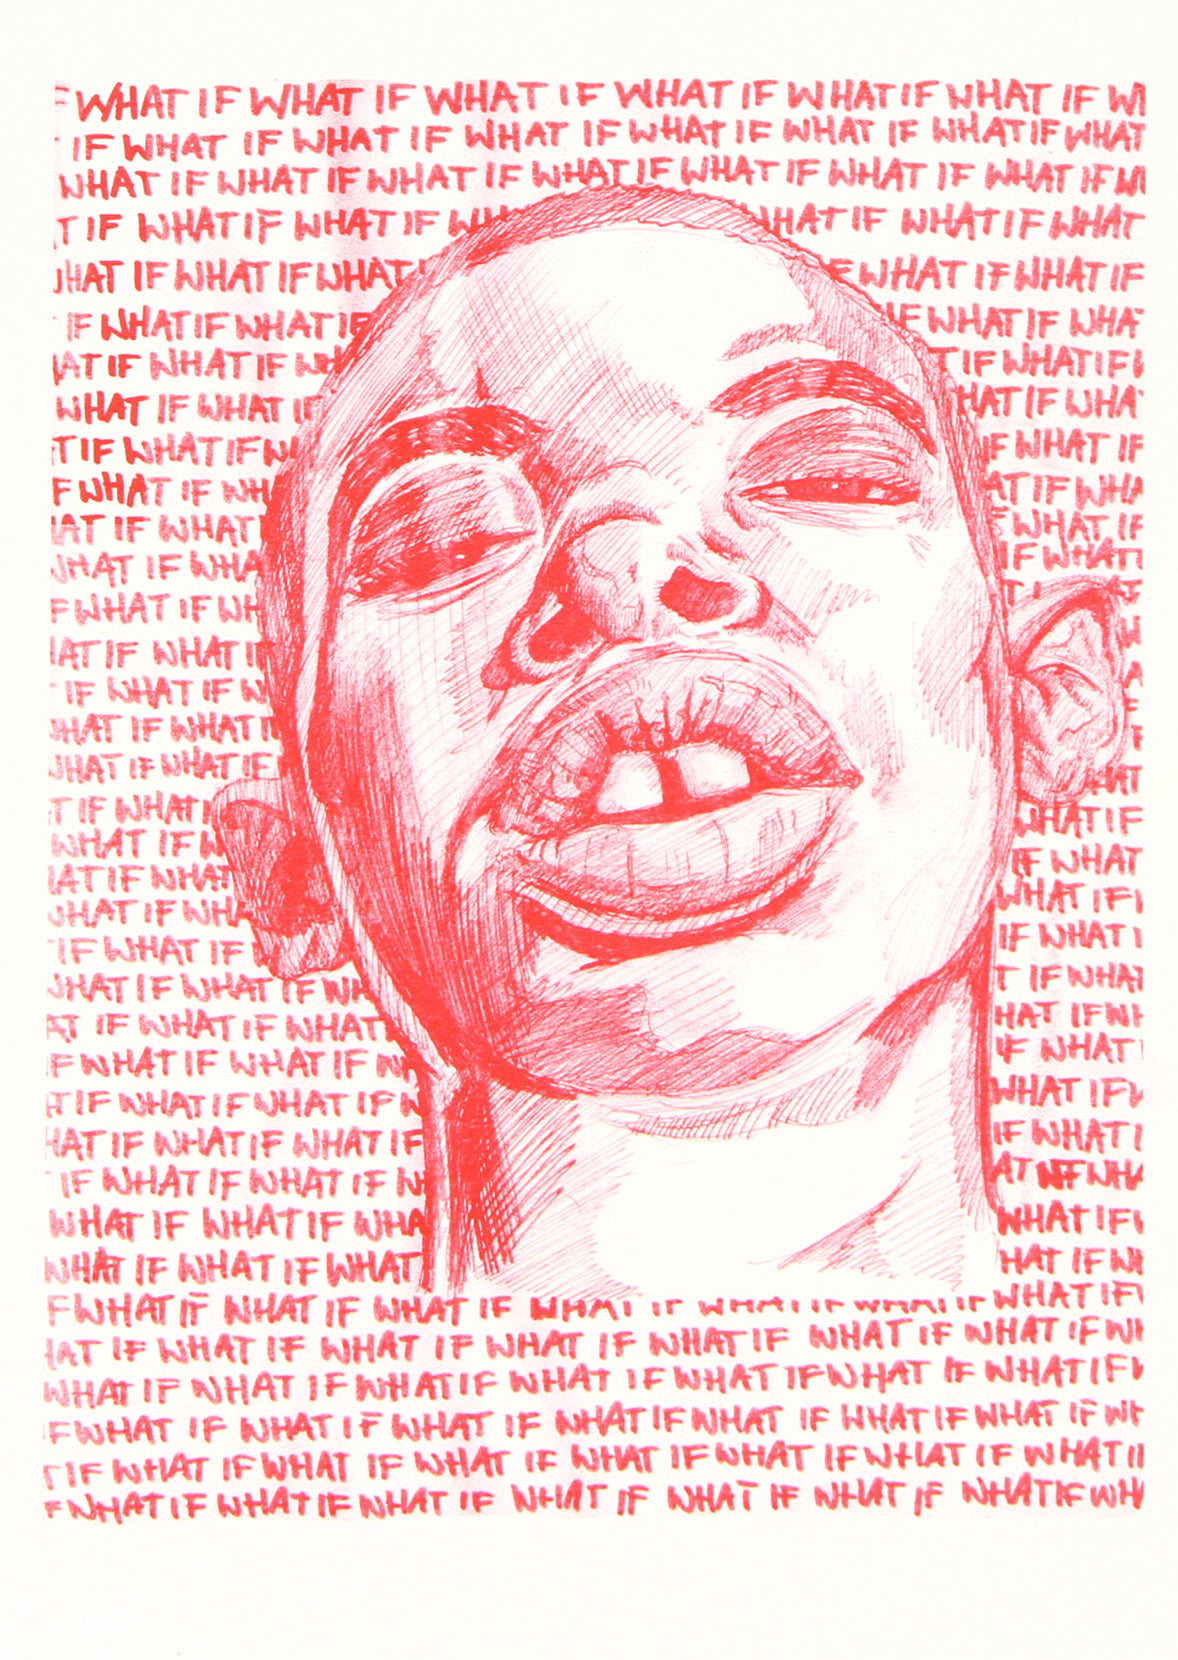 F WHAT IF WHAT IF WHAT IF WHAT IF WHAT IF WHAT IF WI
IF WHAT IF WHAT IF WHAT IF WHAT IF WHAT IF WHAT IF WHAT
WHAT IF WHAT IF WHAT IF WHAT IF WHAT IF WHAT IF WHAT IF WI
T IF WHAT IF WHAT IF WH WHAT IF WHAT IF WHAT
HAT IF WHAT IF WHAT F WHAT IF WHAT IF
IF WHAT IF WHAT IF IF WHAT IF WHA
AT IF WHAT IF WH T IF WHAT IF
WHAT IF WHAT IF HAT IF WHA
T IF WHAT IF W IF WHAT IF
F WHAT IF WH AT IF WHA
AT IF WHAT WHAT IF
HAT IF WHA IF WHAT
F WHAT IF WH T I
AT IF WHAT IF W
IF WHAT IF W A
HAT IF WHAT I
WHAT IF WHAT IF HAT
T IF WHAT I WHAT IF
WHAT IF W IF WHAT
AT IF WHAT WHAT IF
HAT IF WHA IF WHAT I
IF WHAT IF T IF WHA
HAT IF WHAT IF WH HAT IF WH
AT IF WHAT IF WHAT IF WHAT
F WHAT IF WHAT IF WH WHAT IF
T IF WHAT IF WHAT IF W IF WHAT I
HAT IF WHAT IF WHAT IF AT IF WHA
IF WHAT IF WHAT IF W WHAT IF
WHAT IF WHAT IF WHA HAT IF WH
WHAT IF WHAT IF WHAT WHAT IF
F WHAT IF WHAT IF WHAT IF WHAT IF WHAT IF WHAT IF
HAT IF WHAT IF WHAT IF WHAT IF WHAT IF WHAT IF WHAT IF WH
WHAT IF WHAT IF WHAT IF WHAT IF WHAT IF WHAT IF WHAT IF
IF WHAT IF WHAT IF WHAT IF WHAT IF WHAT IF WHAT IF WHAT IF WH
T IF WHAT IF WHAT IF WHAT IF WHAT IF WHAT IF WHAT IF WHAT I
F WHAT IF WHAT IF WHAT IF WHAT IF WHAT IF WHAT IF WHAT IF WH